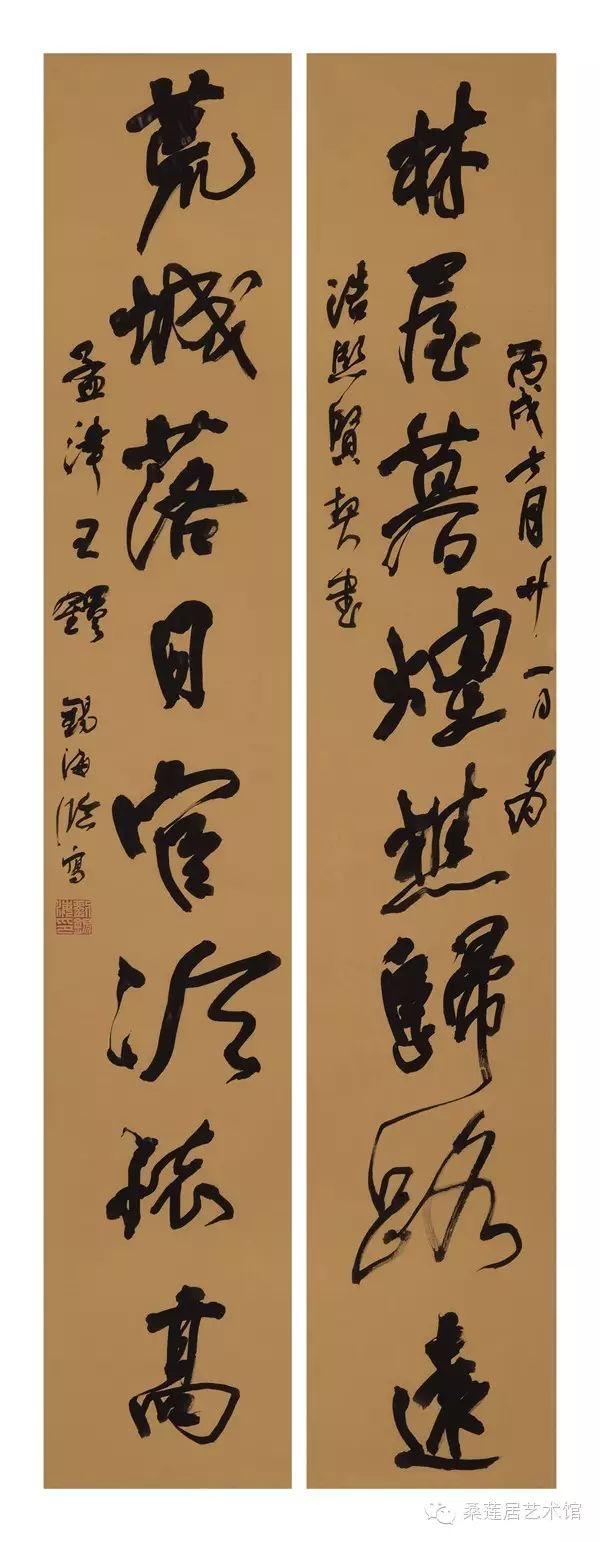 丙戌六月廿一日為
林屋暮煙樵歸路遠
浩熙賢契書
荒城落日官冷猿高
孟津王鐸 錫海臨寫
桑莲居艺术馆